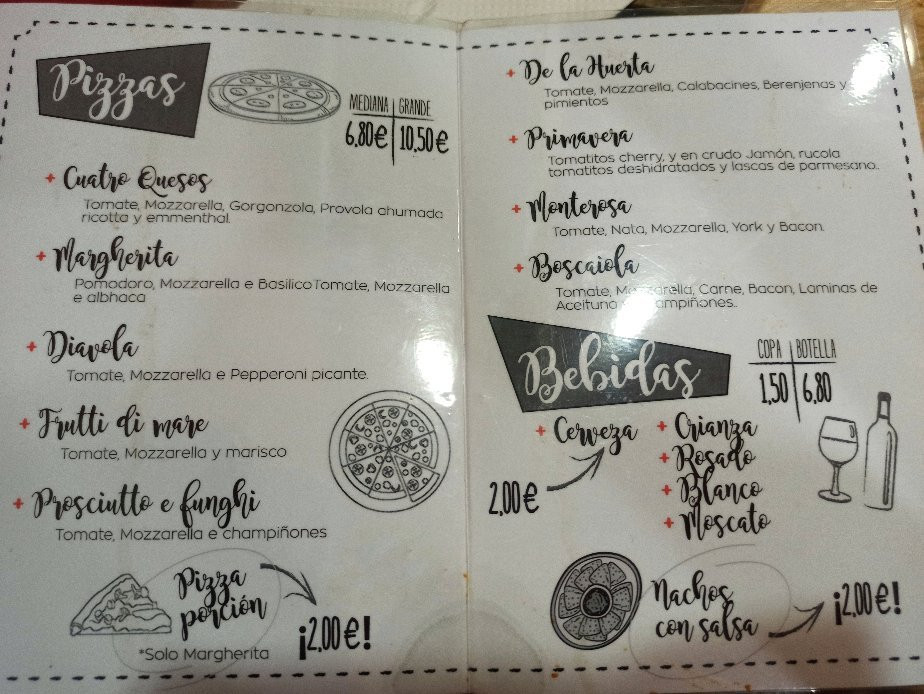 Pizzas
MEDIANA GRANDE
6,80€ 10,50€
+ Cuatro Quesos
Tomate, Mozzarella, Gorgonzola, Provola ahumada
ricotta y emmenthal.
+ Margherita
Pomodoro, Mozzarella e BasilicoTomate, Mozzarella
e albhaca
+ Diavola
Tomate, Mozzarella e Pepperoni picante.
+ Frutti di mare
Tomate, Mozzarella y marisco
+ Prosciutto e funghi
Tomate, Mozzarella e champiñones
Pizza
porción
¡2,00€!
*Solo Margherita
+ De la Huerta
Tomate, Mozzarella, Calabacines, Berenjenas y
pimientos
+ Primavera
Tomatitos cherry, y en crudo Jamón, rucola
tomatitos deshidratados y lascas de parmesano.
+ Monterosa
Tomate, Nata, Mozzarella, York y Bacon.
+ Boscaiola
Tomate, Mozzarella, Carne, Bacon, Laminas de
Aceituna y champiñones.
Bebidas
COPA BOTELLA
1,50 6,80
+ Cerveza
2,00€
+ Crianza
+ Rosado
+ Blanco
+ Moscato
Nachos
con salsa
¡2,00€!